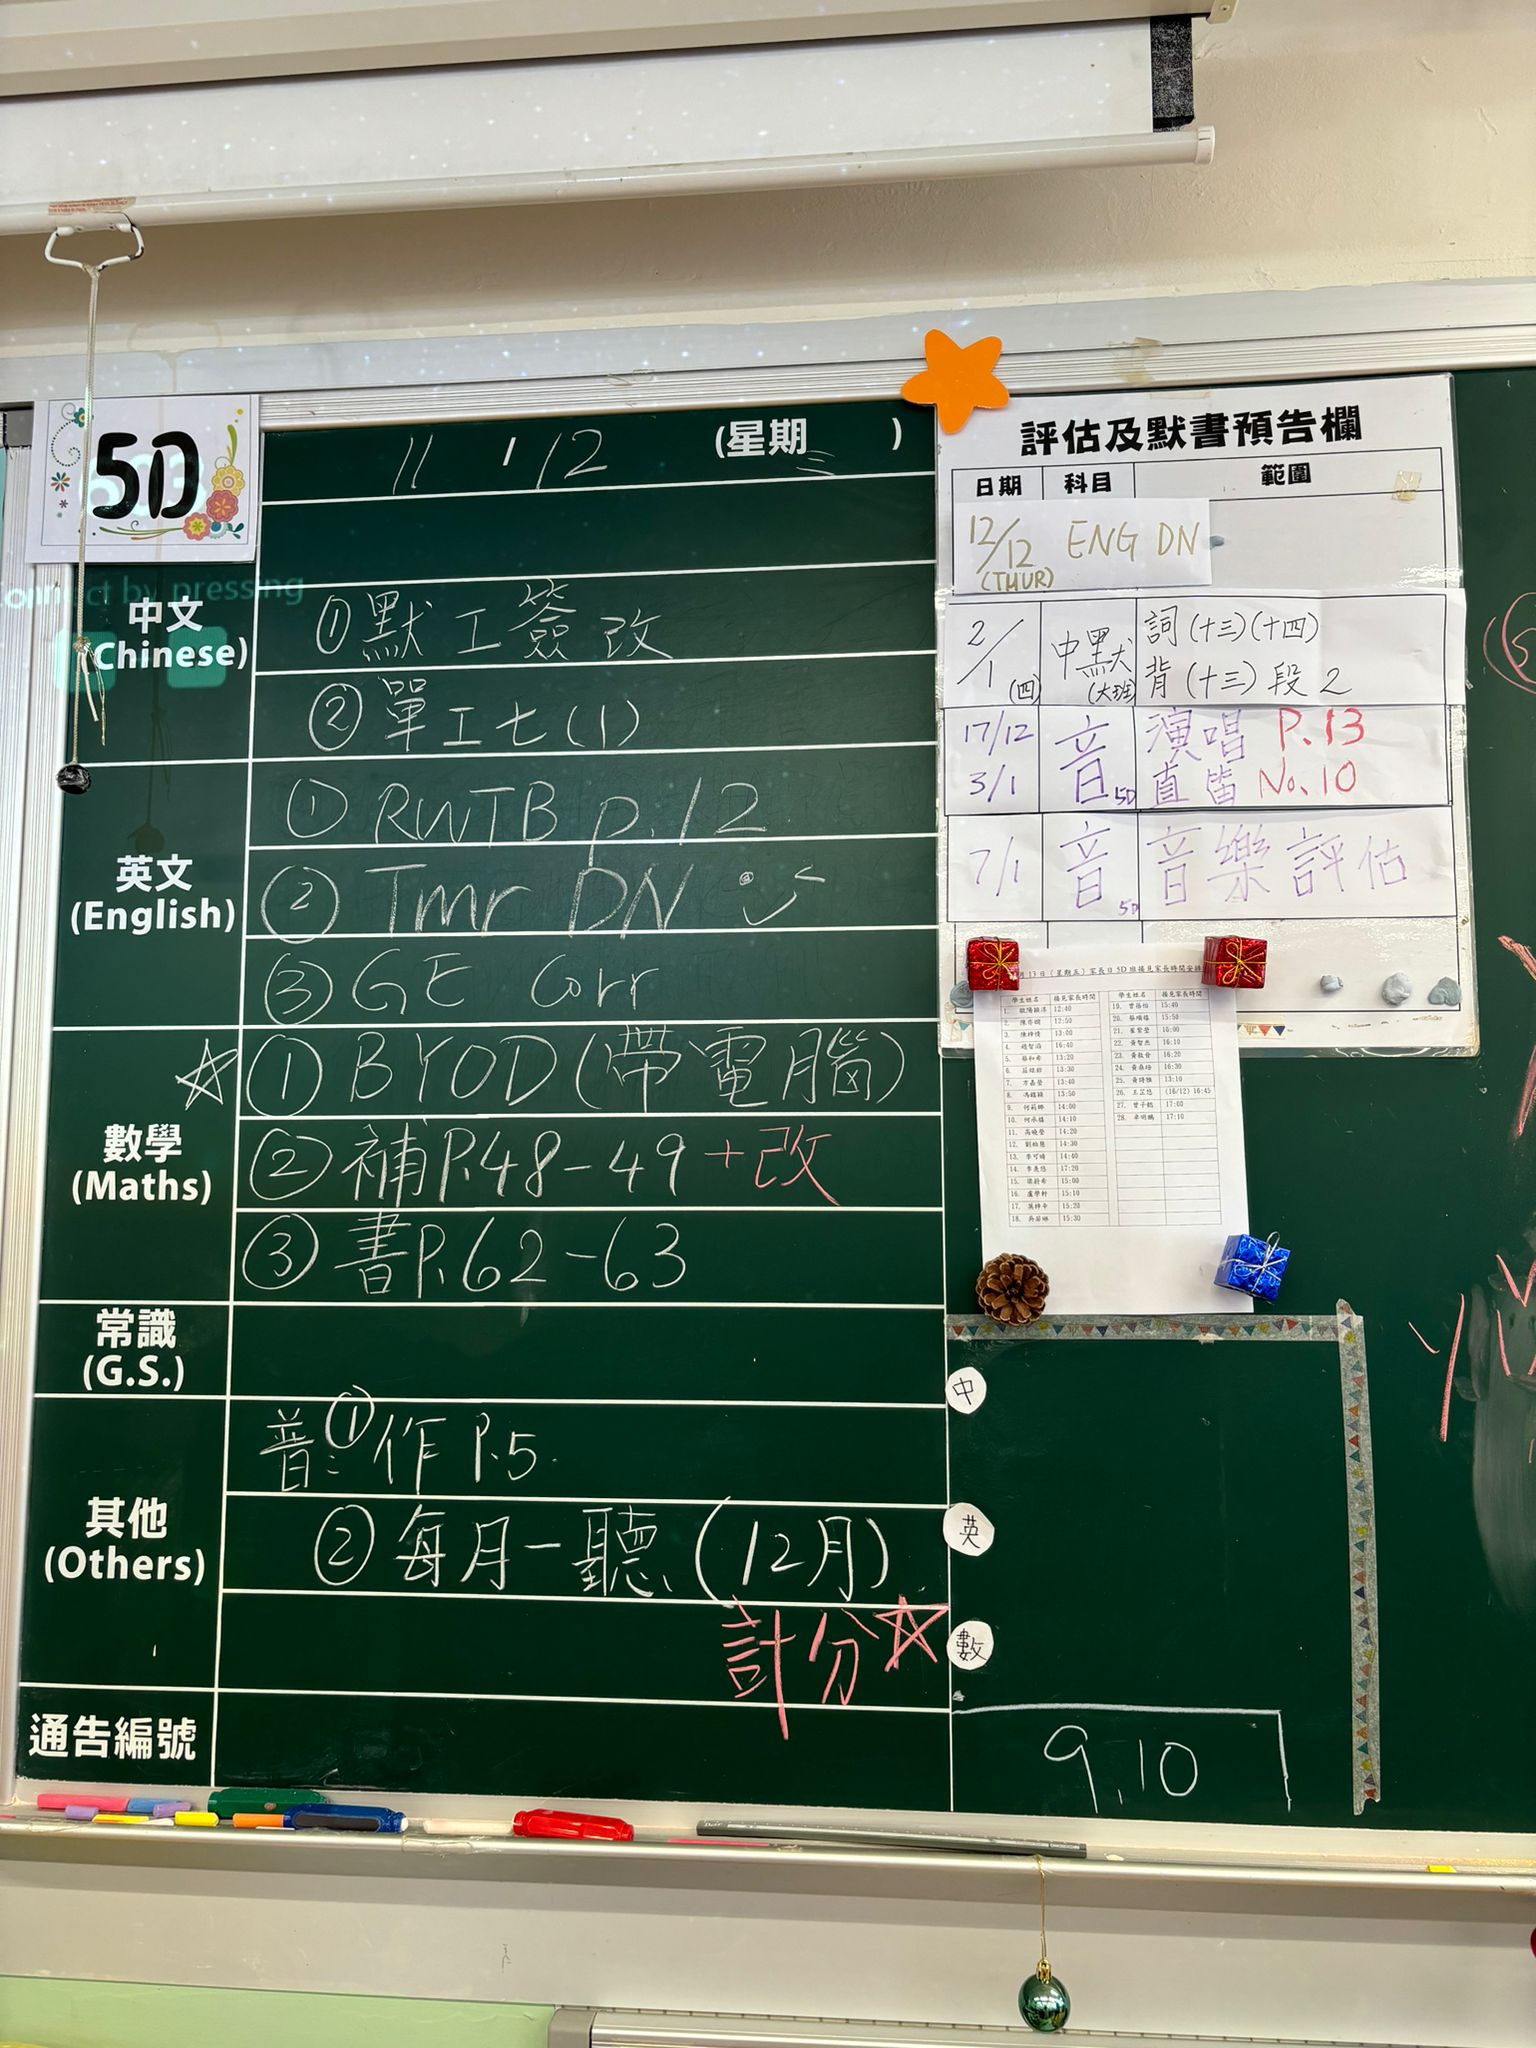 5D
11 / 12 (星期三)
中文
(Chinese)
①默工簽改
②單工七(1)
英文
(English)
① RWTB p.12
② Tmr DN
③ GE Corr
數學
(Maths)
☆① BYOD(帶電腦)
②補P.48-49+改
③書P.62-63
常識
(G.S.)
其他
(Others)
普:①作P.5.
②每月一聽(12月)
計分☆
通告編號
onnect by pressing
評估及默書預告欄
日期 科目 範圍
12/12 (THUR) ENG DN
2/1 (四) 中默 (大班) 詞(十三)(十四)
背(十三)段2
17/12 音 5D 演唱 P.13
3/1 直笛 No.10
7/1 音 5D 音樂評估
月13日(星期五)家長日5D班接見家長時間安排
學生姓名 接見家長時間 學生姓名 接見家長時間
1. 12:40
2. 12:50
3. 13:00
4. 16:40
5. 13:20
6. 13:30
7. 13:40
8. 13:50
9. 14:00
10. 14:10
11. 14:20
12. 14:30
13. 14:40
14. 17:20
15. 15:00
16. 15:10
17. 15:20
18. 15:30
19. 15:40
20. 15:50
21. 16:00
22. 16:10
23. 16:20
24. 16:30
25. 13:10
26. (16/12) 16:45
27. 17:00
28. 17:10
中
英
數
9.10